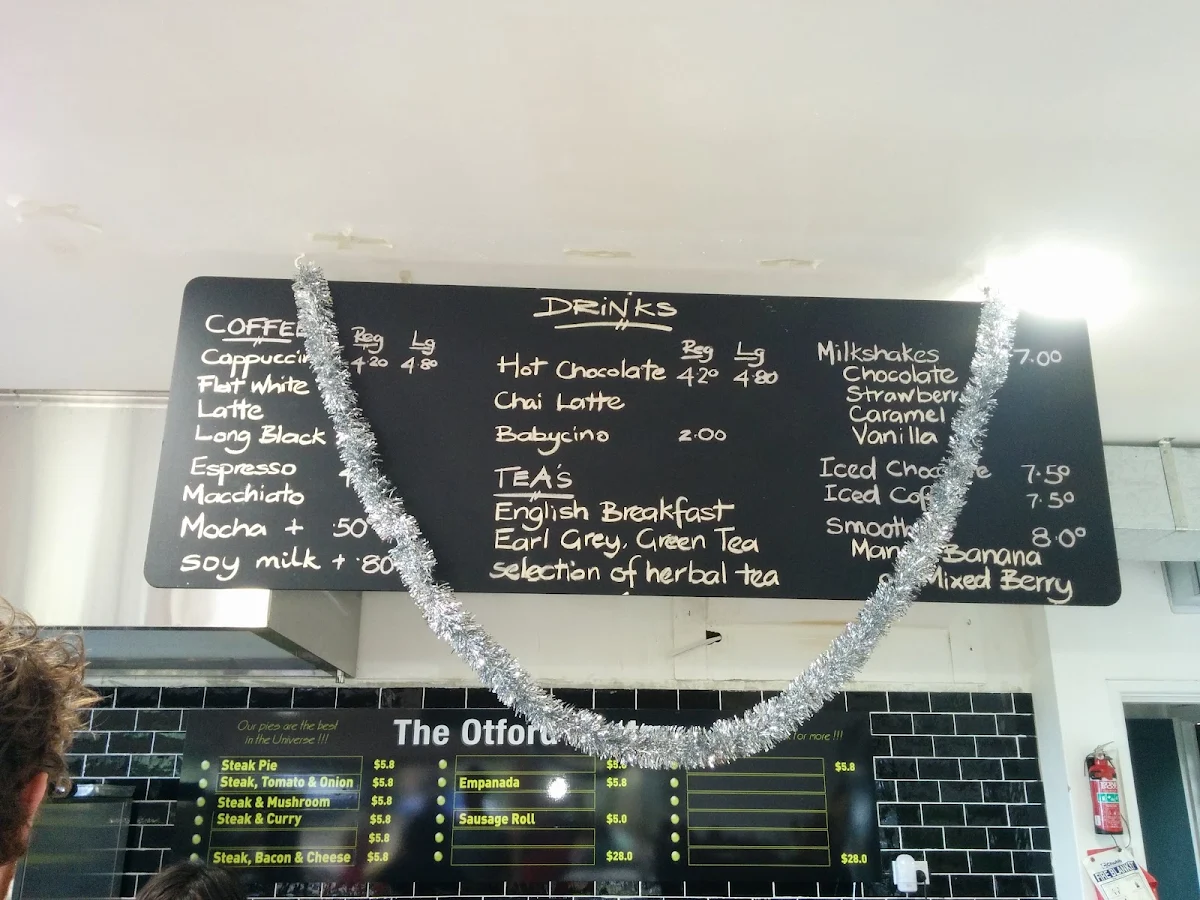 DRINKS
COFFEE
Reg Lg
Cappuccin 4.20 4.80
Flat white
Latte
Long Black
Espresso 4
Macchiato
Mocha + .50
soy milk + .80
Reg Lg
Hot Chocolate 4.20 4.80
Chai Latte
Babycino 2.00
TEA's
English Breakfast
Earl Grey, Green Tea
selection of herbal tea
Milkshakes 7.00
Chocolate
Strawberr
Caramel
Vanilla
Iced Choc e 7.50
Iced Cof 7.50
Smooth 8.00
Man Banana
Mixed Berry
Our pies are the best
in the Universe !!!
The Otford
for more !!!
Steak Pie $5.8
Steak, Tomato & Onion $5.8
Steak & Mushroom $5.8
Steak & Curry $5.8
$5.8
Steak, Bacon & Cheese $5.8
$5.8
Empanada $5.8
Sausage Roll $5.0
$28.0
$5.8
$28.0
FIRE BLANKET